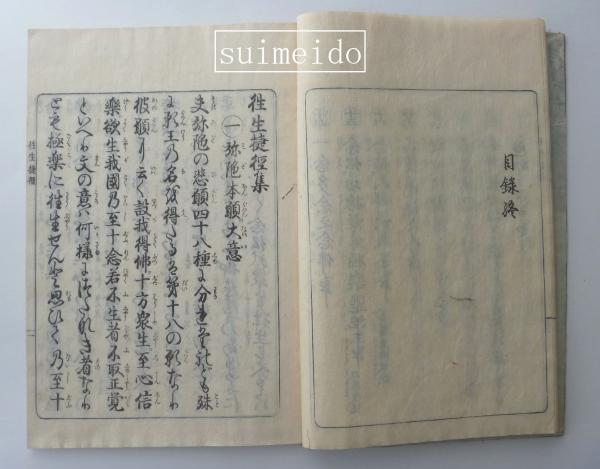 suimeido
目録終
往生捷徑集
一 弥陀本願大意
夫弥陀の悲願四十八種に分れども殊
に王の名を得たる第十八の願なり
彼願に云く設我得佛十方衆生至心信
樂欲生我國乃至十念若不生者不取正覚
といへり文の意ハ何様につたなき者なり
とも極楽に往生せんと思ひて乃至十
往生捷徑